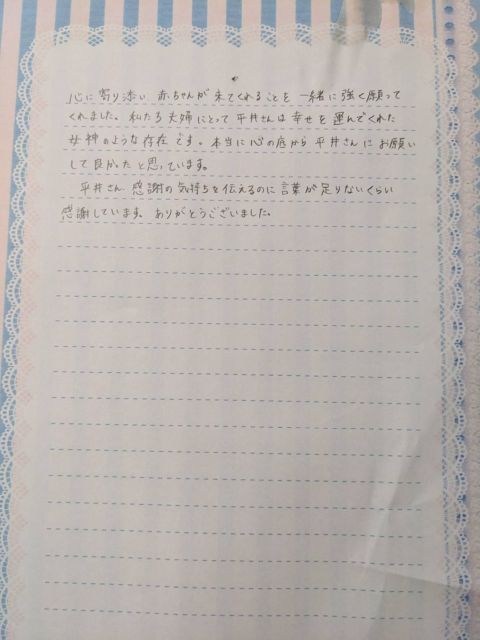 心に寄り添い 赤ちゃんが来てくれることを 一緒に強く願って
くれました。私たち夫婦にとって 平井さんは 幸せを 運んでくれた
女神のような存在です。本当に心の底から 平井さんにお願い
して良かったと思っています。
平井さん 感謝の気持ちを伝えるのに言葉が足りないくらい
感謝しています。ありがとうございました。